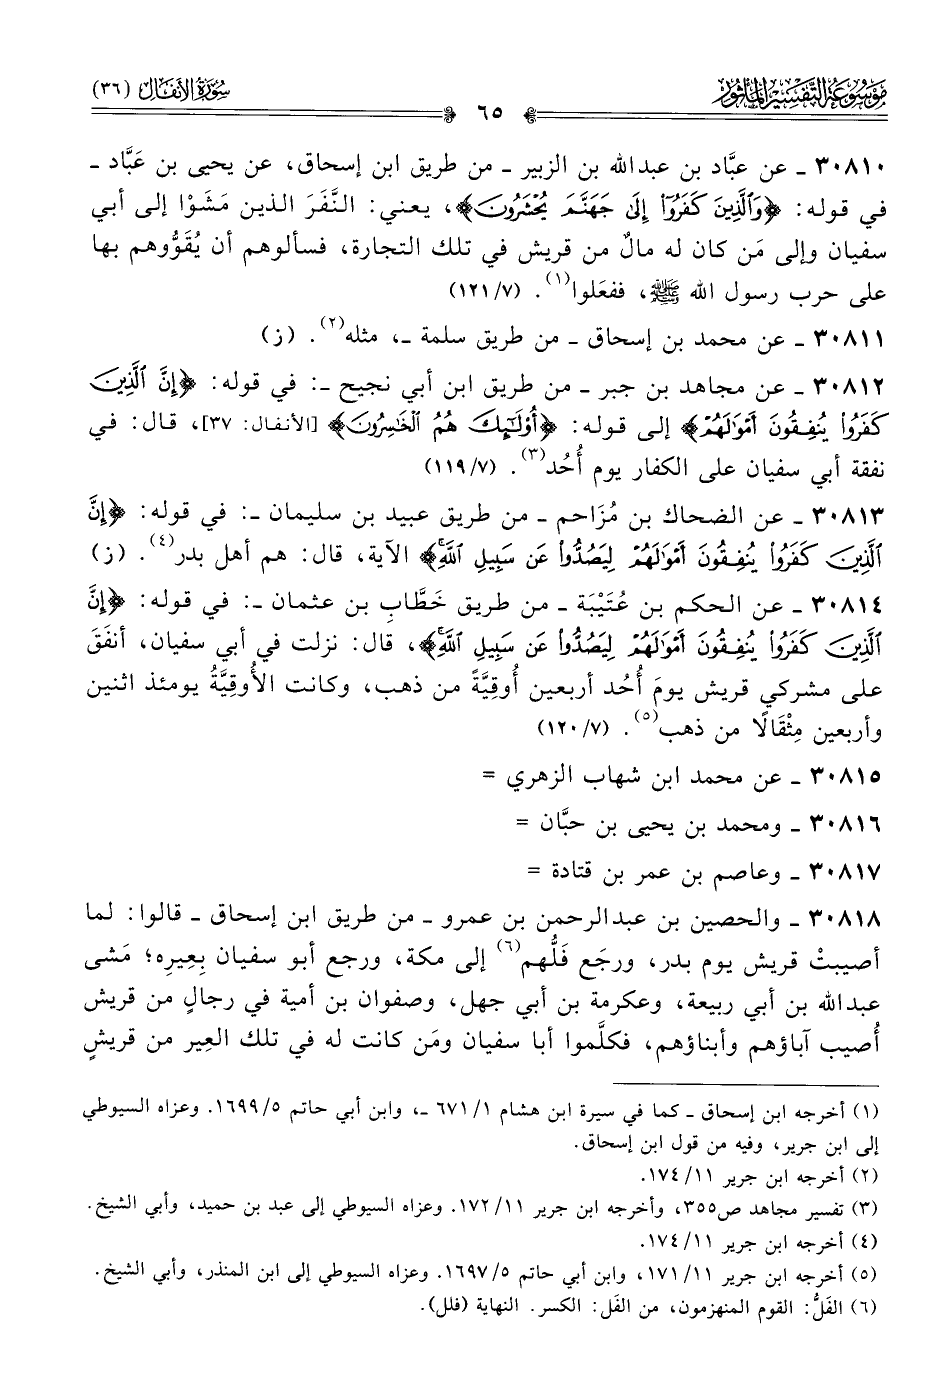 مَوْسُوعَة التَّفْسِير المَأْثُور
سُورَةُ الأَنفَال (٣٦)
٦٥
٣٠٨١٠ ـ عن عبَّاد بن عبدالله بن الزبير ـ من طريق ابن إسحاق، عن يحيى بن عَبَّاد ـ
في قوله: ﴿وَالَّذِينَ كَفَرُوا إِلَىٰ جَهَنَّمَ يُحْشَرُونَ﴾، يعني: النَّفَرَ الذين مَشَوْا إلى أبي
سفيان وإلى مَن كان له مالٌ من قريش في تلك التجارة، فسألوهم أن يُقَوُّوهم بها
على حرب رسول الله ﷺ، ففعَلوا(١). (٧/ ١٢١)
٣٠٨١١ ـ عن محمد بن إسحاق ـ من طريق سلمة ـ، مثله(٢). (ز)
٣٠٨١٢ ـ عن مجاهد بن جبر ـ من طريق ابن أبي نجيح ـ: في قوله: ﴿إِنَّ الَّذِينَ
كَفَرُوا يُنفِقُونَ أَمْوَالَهُمْ﴾ إلى قوله: ﴿أُولَٰئِكَ هُمُ الْخَاسِرُونَ﴾ [الأنفال: ٣٧]، قال: في
نفقة أبي سفيان على الكفار يوم أُحُد(٣). (٧/ ١١٩)
٣٠٨١٣ ـ عن الضحاك بن مُزَاحم ـ من طريق عبيد بن سليمان ـ: في قوله: ﴿إِنَّ
الَّذِينَ كَفَرُوا يُنفِقُونَ أَمْوَالَهُمْ لِيَصُدُّوا عَن سَبِيلِ اللَّهِ﴾ الآية، قال: هم أهل بدر(٤). (ز)
٣٠٨١٤ ـ عن الحكم بن عُتَيْبَة ـ من طريق خَطَّابِ بن عثمان ـ: في قوله: ﴿إِنَّ
الَّذِينَ كَفَرُوا يُنفِقُونَ أَمْوَالَهُمْ لِيَصُدُّوا عَن سَبِيلِ اللَّهِ﴾، قال: نزلت في أبي سفيان، أنفَقَ
على مشركي قريش يومَ أُحُد أربعين أُوقِيَّةً من ذهب، وكانت الأُوقِيَّةُ يومئذ اثنين
وأربعين مِثْقَالًا من ذهب(٥). (٧/ ١٢٠)
٣٠٨١٥ ـ عن محمد ابن شهاب الزهري =
٣٠٨١٦ ـ ومحمد بن يحيى بن حبَّان =
٣٠٨١٧ ـ وعاصم بن عمر بن قتادة =
٣٠٨١٨ ـ والحصين بن عبدالرحمن بن عمرو ـ من طريق ابن إسحاق ـ قالوا: لما
أصيبتْ قريش يوم بدر، ورجَع فَلُّهم(٦) إلى مكة، ورجع أبو سفيان بِعِيره؛ مَشى
عبدالله بن أبي ربيعة، وعكرمة بن أبي جهل، وصفوان بن أمية في رجالٍ من قريش
أُصيب آباؤهم وأبناؤهم، فكلَّموا أبا سفيان ومَن كانت له في تلك العِير من قريشٍ
(١) أخرجه ابن إسحاق ـ كما في سيرة ابن هشام ١/ ٦٧١ ـ، وابن أبي حاتم ٥/ ١٦٩٩. وعزاه السيوطي
إلى ابن جرير، وفيه من قول ابن إسحاق.
(٢) أخرجه ابن جرير ١١/ ١٧٤.
(٣) تفسير مجاهد ص٣٥٥، وأخرجه ابن جرير ١١/ ١٧٢. وعزاه السيوطي إلى عبد بن حميد، وأبي الشيخ.
(٤) أخرجه ابن جرير ١١/ ١٧٤.
(٥) أخرجه ابن جرير ١١/ ١٧١، وابن أبي حاتم ٥/ ١٦٩٧. وعزاه السيوطي إلى ابن المنذر، وأبي الشيخ.
(٦) الفَلُّ: القوم المنهزمون، من الفَل: الكسر. النهاية (فلل).